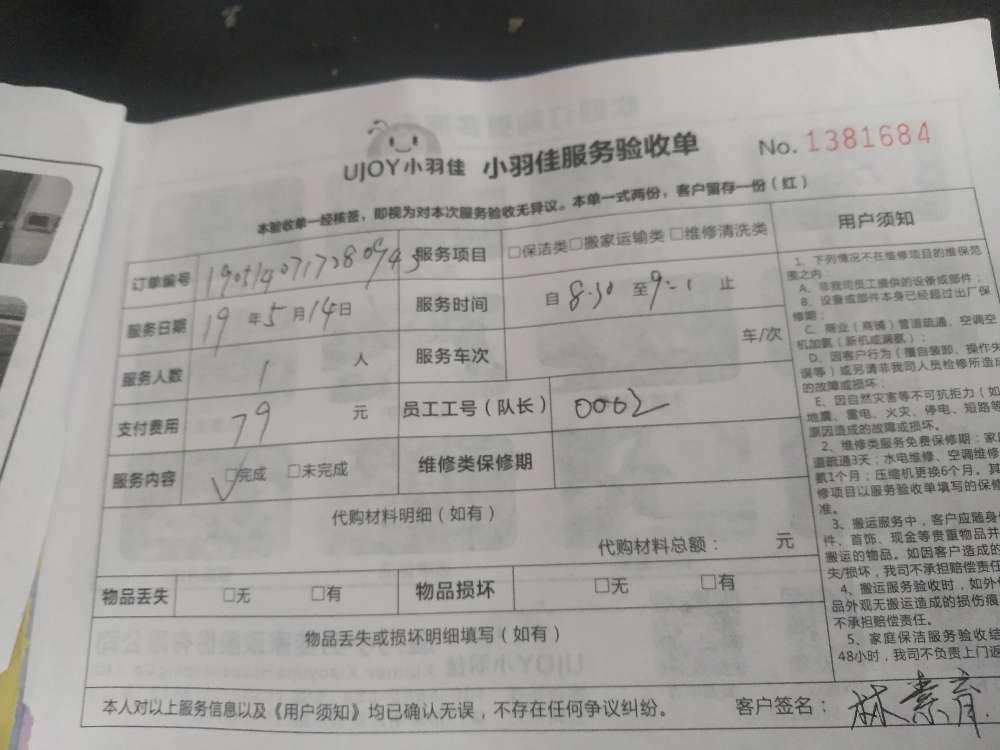 UJOY小羽佳 小羽佳服务验收单 No. 1381684
本验收单一经核签，即视为对本次服务验收无异议。本单一式两份，客户留存一份（红）
订单编号
服务项目 □保洁类□搬家运输类□维修清洗类
服务日期 19年5月14日
服务时间 自 8:30 至 9: 止
服务人数 1 人
服务车次 车/次
支付费用 79 元
员工工号（队长） 0062
服务内容 √□完成 □未完成
维修类保修期
代购材料明细（如有）
代购材料总额： 元
物品丢失 □无 □有
物品损坏 □无 □有
物品丢失或损坏明细填写（如有）
本人对以上服务信息以及《用户须知》均已确认无误，不存在任何争议纠纷。 客户签名：林素育
用户须知
1、下列情况不在维修项目的维保范
围之内：
A、非我司员工提供的设备或部件；
B、设备或部件本身已经超过出厂保
修期；
C、商业（商铺）管道疏通、空调空
机加氟（新机或漏氟）；
D、因客户行为（擅自装卸、操作失
误等）或另请非我司人员检修所造成
的故障或损坏；
E、因自然灾害等不可抗拒力（如
地震、雷电、火灾、停电、短路等
原因造成的故障或损坏。
2、维修类服务免费保修期：家庭
道疏通3天；水电维修、空调维修
氟1个月；压缩机更换6个月。其
修项目以服务验收单填写的保修
准。
3、搬运服务中，客户应随身
件、首饰、现金等贵重物品并
搬运的物品。如因客户造成的
失/损坏，我司不承担赔偿责任
4、搬运服务验收时，如外
品外观无搬运造成的损伤痕
不承担赔偿责任。
5、家庭保洁服务验收结
48小时，我司不负责上门返